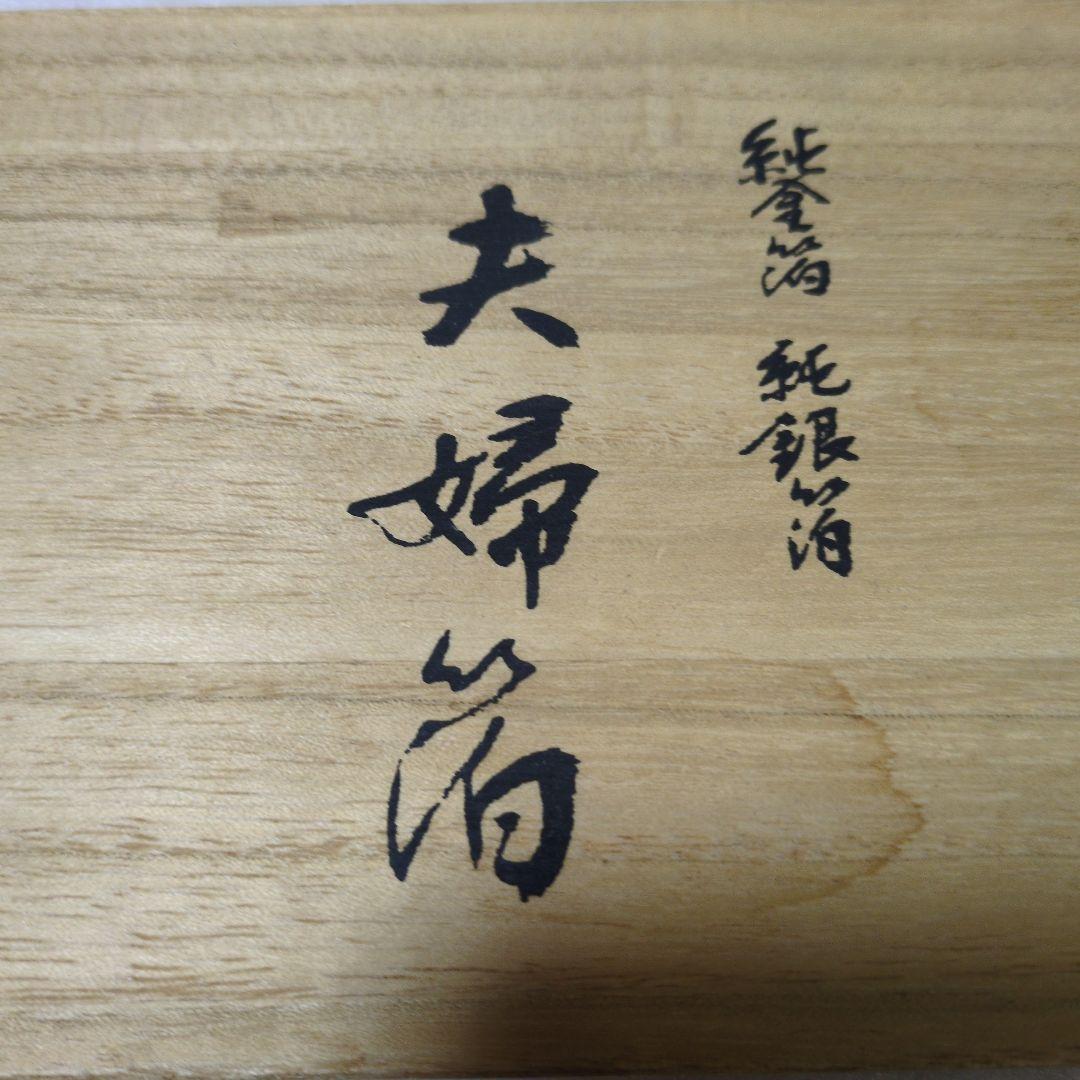 純金箔 純銀箔
夫婦箔